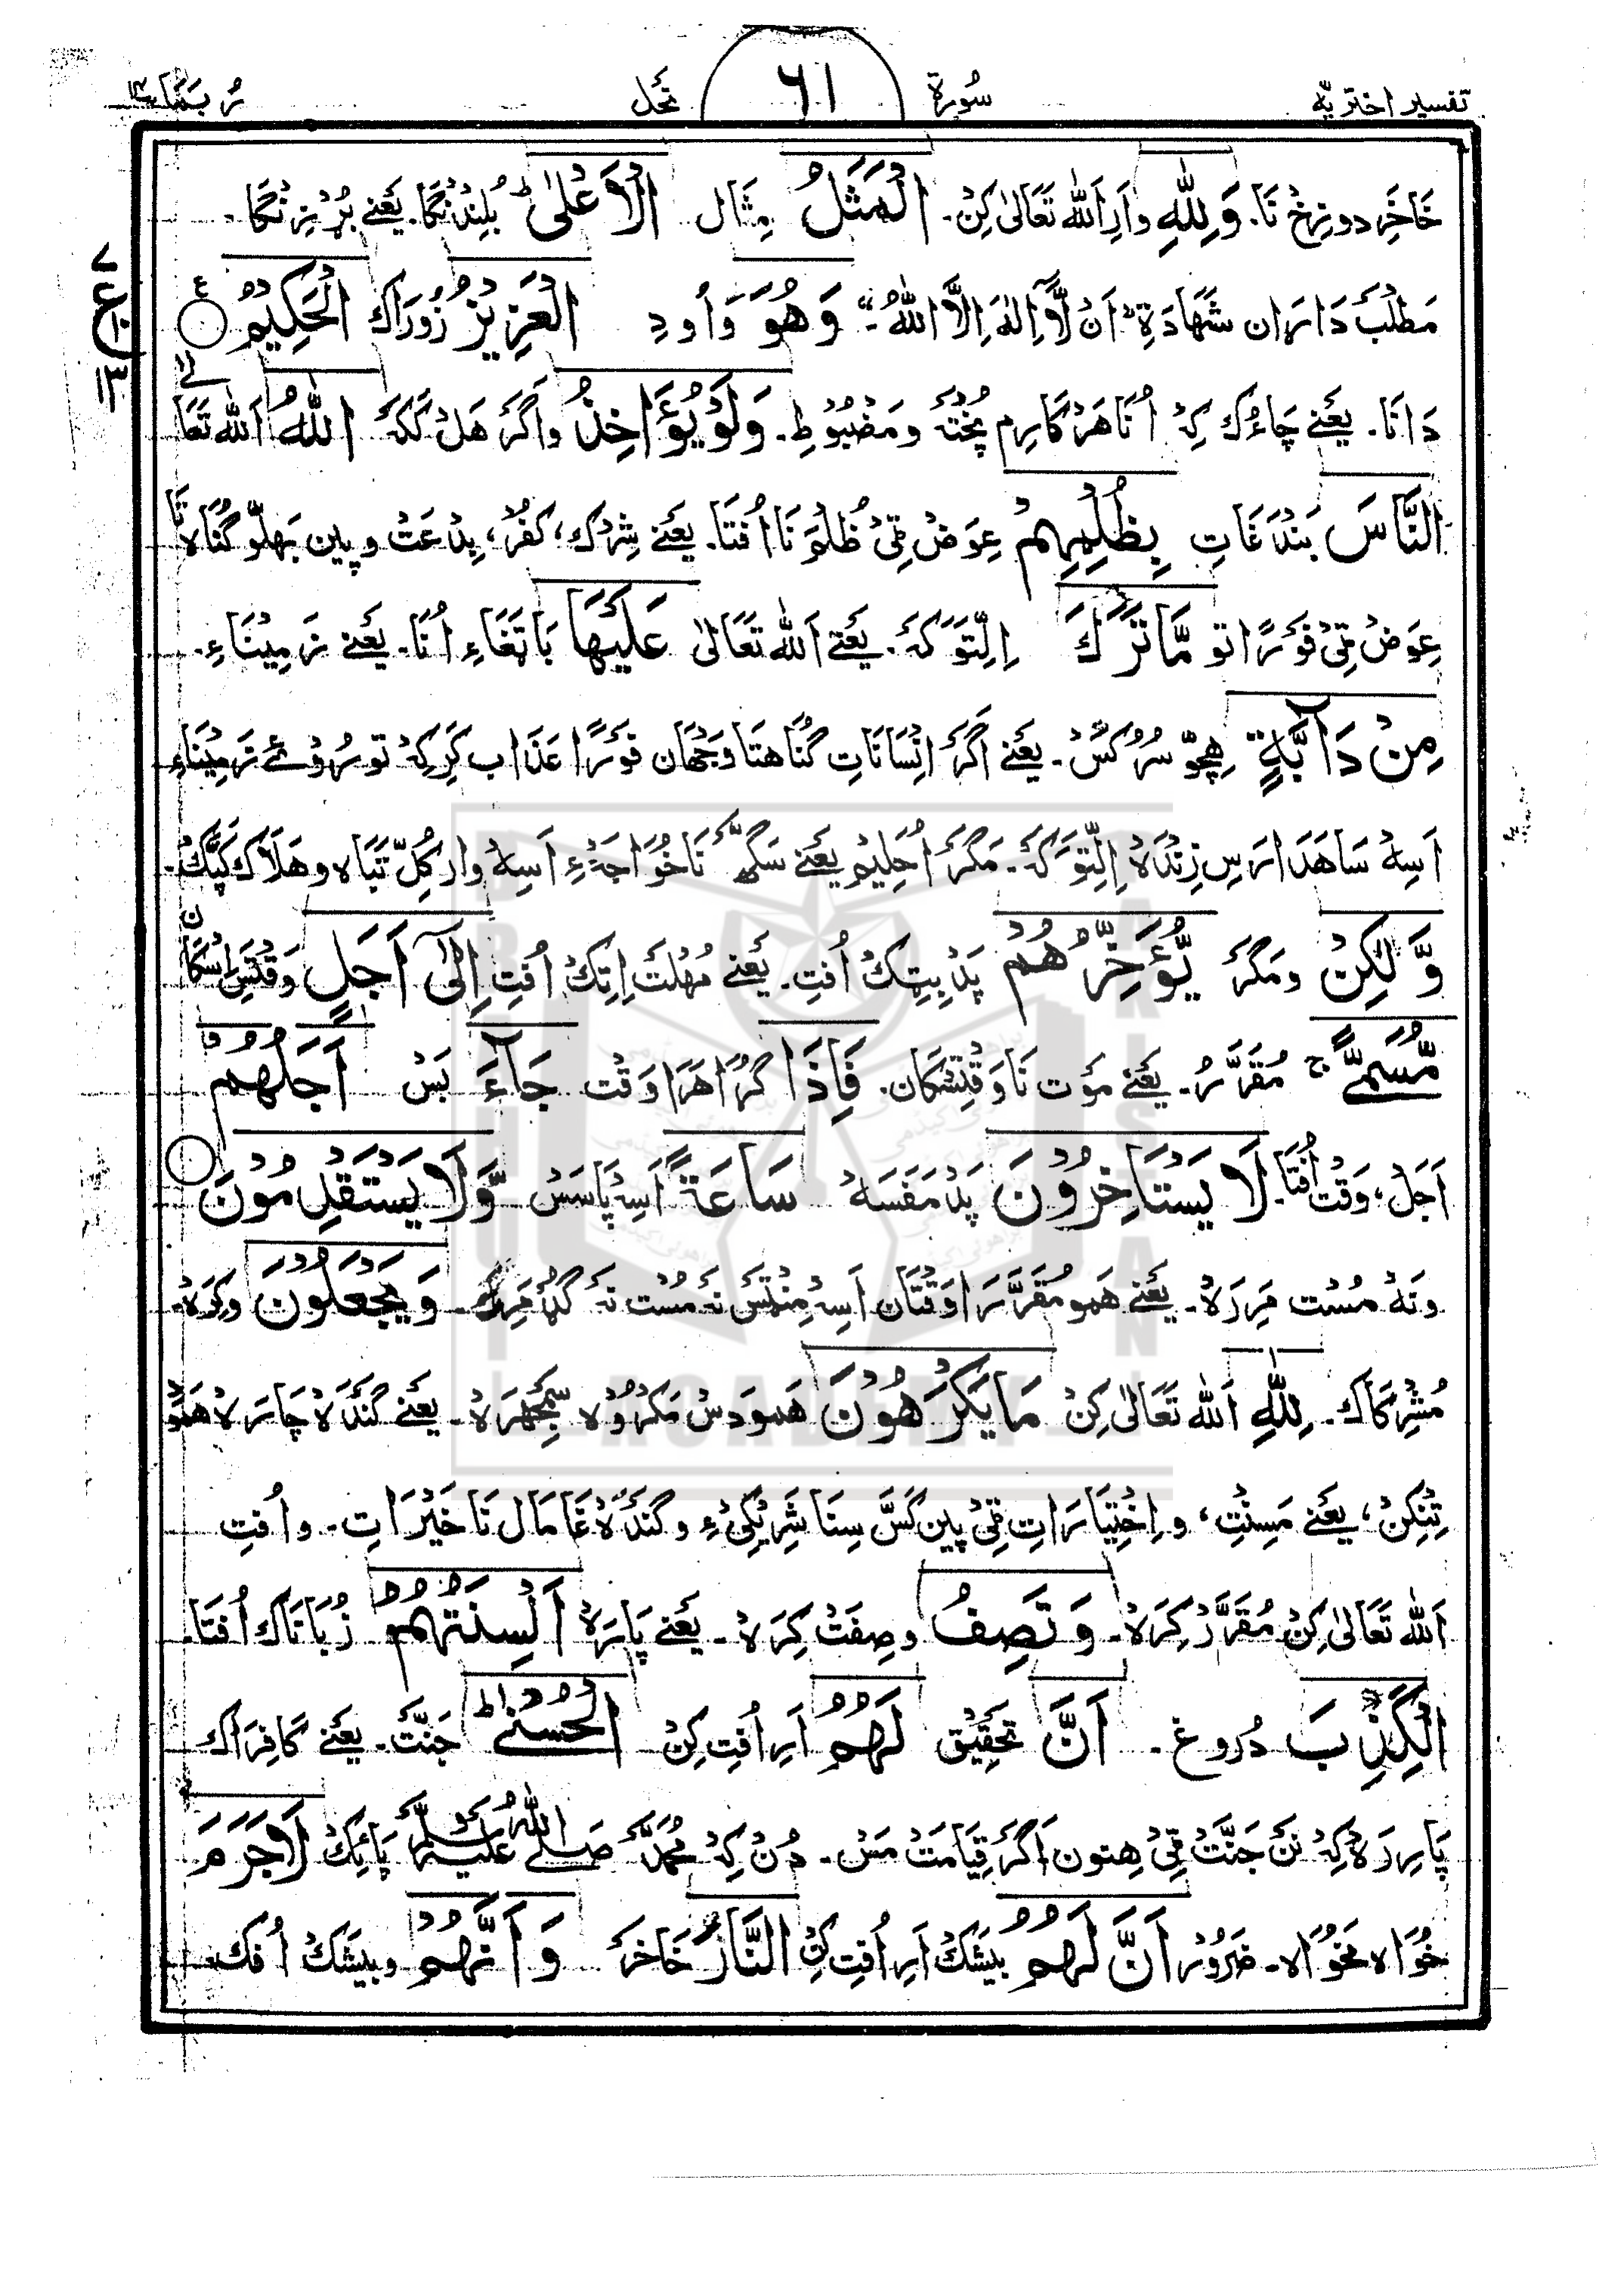 تفسیر اختریّه
سُورة
٦١
نَحل
رُبَمَا ١٤
خَاخَرِ دوزخ نَا۔ وَلِلّٰهِ وَارِ اَللّٰه تَعَالىٰ كِنْ۔ الْمَثَلُ مِثَال الْاَعْلٰى ؕ بُلِنْد نْگا۔ يَعْنے بُرْزِ نْگا۔
مَطْلَبْ دَارَان شَهَادَةِ اَنْ لَّآ اِلٰهَ اِلَّا اللّٰهُ۔ وَهُوَ وَاُودِ الْعَزِيْزُ زُوْرَاك الْحَكِيْمُ
٧
ع
١٣
دَانَا۔ يَعْنے چَاءُك كِهْ اُنَا هَرْ كَارِم پُخْتَه وَمَضْبُوْط۔ وَلَوْ يُؤَاخِذُ وَاگَرْ هَلْ كَكَه اللّٰهُ اَللّٰه تَعَالىٰ
النَّاسَ بَنْدَغَاتِ بِظُلْمِهِمْ عِوَضْ ٹِیْ ظُلْمَ نَا اُفْتَا۔ يَعْنے شِرْك، كُفْر، بِدْعَتْ و پين بَهَلّو گُنَاه نَا
عِوَضْ ٹِیْ فَوْرًا تو مَّا تَرَكَ اِلِّتَوَكَه۔ يَعْنے اَللّٰه تَعَالىٰ عَلَيْهَا بَا تَغَاءِ اُنَا۔ يَعْنے زَمِيْنَاءِ۔
مِنْ دَآبَّةٍ هِچّو سُرُكَسْ۔ يَعْنے اَگَرْ اِنْسَانَاتِ گُنَاهتَا وَجْهَان فَوْرًا عَذَاب كَرِكِهْ تو رُوْئے زَمِيْنَاءِ
اَسِهْ سَاهَدَارَسِ زِنْدَهْ اِلِّتَوَكَه۔ مَگَرْ اُحَلِيْم يَعْنے سَگّهْ نَا خُوَاجَهْءِ اَسِهْ وَار كُلِّ تَبَاه و هَلَاك كَپَّكْ۔
وَّلٰكِنْ وَمَگَرْ يُّؤَخِّرُهُمْ پَدِ بِيْتِكْ اُفْتِ۔ يَعْنے مُهْلَتْ اِتِكْ اُفْتِ اِلٰٓى اَجَلٍ وَقْتَسِ اِسْكَان
مُّسَمًّى ج مُقَرَّرْ۔ يَعْنے مَوْت نَا وَقْتِسْكَان۔ فَاِذَا گُڑَا هَرَا وَقْت جَآءَ بَسْ اَجَلُهُمْ
اَجَلْ، وَقْت اُفْتَا۔ لَا يَسْتَاْخِرُوْنَ پَدْ مَفَسَهْ سَاعَةً اَسِهْ پَاسَسْ وَّلَا يَسْتَقْدِمُوْنَ
وَنَهْ مُسْت مَرِرَهْ۔ يَعْنے هَمو مُقَرَّرَ اوَقْتَان اَسِهْ مِنْٹَسْ نَه مُسْت نَه گُڈْ مَرِرْ۔ وَيَجْعَلُوْنَ وَكَرَهْ
مُشْرِكَاك۔ لِلّٰهِ اَللّٰه تَعَالىٰ كِنْ مَا يَكْرَهُوْنَ هَمودِسْ مَكْرُوْه سَمْجَهِرَهْ۔ يَعْنے گَنْدَهْ چَارَرَهْ هَنْدُو
تِنْكِنْ، يَعْنے مَسِنْتِ، و اِخْتِيَارَاتِ ٹِیْ پين كَسَّ سِنَا شَرِيْكِيْءِ و گَنْدَهْ غَا مَال نَا خَيْرَاتِ۔ وَ اُفْتِ
اَللّٰه تَعَالىٰ كِنْ مُقَرَّرْ كِرَهْ۔ وَتَصِفُ وَصِفَتْ كِرَهْ۔ يَعْنے پَارَهْ اَلْسِنَتُهُمُ زُبَانَاك اُفْتَا۔
الْكَذِبَ دُروغ۔ اَنَّ تَحْقِيْق لَهُمُ اَرِ اُفْتِ كِنْ الْحُسْنٰى ؕ جَنَّتْ۔ يَعْنے كَافِرَاك
پَارِرَهْ كِهْ نَنْ جَنَّتْ ٹِیْ هِنون اَگَرْ قِيَامَتْ مَسْ۔ دُنْ كِهْ مُحَمَّدْ صَلَّے اللّٰهُ عَلَيْهِ وَسَلَّمْ پَائِكْ لَاجَرَمَ
خُوَاه مَخُوَاه۔ ضَرُوْر اَنَّ لَهُمُ بيشَكْ اَرِ اُفْتِ كِنْ النَّارَ خَاخَرْ وَاَنَّهُمْ وَبيشَكْ اُفْك